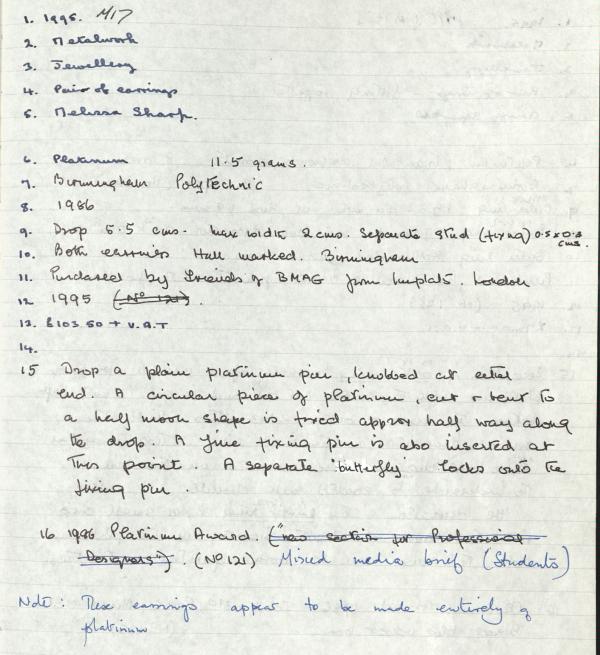 1. 1995. M17
2. Metalwork
3. Jewellery
4. Pair of earrings
5. Melissa Sharp.
6. Platinum 11.5 grams.
7. Birmingham Polytechnic
8. 1986
9. Drop 5.5 cms. Max width 2 cms. Separate stud (fixing) 0.5 x 0.5 cms.
10. Both earrings Hall marked. Birmingham
11. Purchased by Friends of BMAG from Implats. London
12 1995 (No 121).
13. £103.50 + V.A.T
14.
15 Drop a plain platinum pin, knobbed at either
end. A circular piece of platinum, cut & bent to
a half moon shape is fixed approx half way along
the drop. A fine fixing pin is also inserted at
this point. A separate 'butterfly' locks onto the
fixing pin.
16. 1986 Platinum Award. ("new section for Professional
Designers"). (No 121) Mixed media brief (Students)
Note: These earrings appear to be made entirely of
platinum